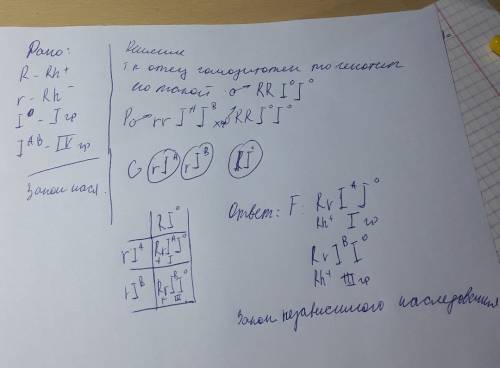 Дано:
R - Rh⁺
r - Rh⁻
I⁰ - I гр
I^AB - IV гр
Закон насл.
Решение
Т.к отец гомозиготен то генотип
RR I⁰I⁰
P rr I^A I^B × RR I⁰I⁰
G rI^A rI^B RI⁰
RI⁰
rI^A Rr I^A I⁰
+ I
rI^B Rr I^B I⁰
+ III
Ответ: F: Rr I^A I⁰
Rh⁺ I гр
Rr I^B I⁰
Rh⁺ III гр
Закон независимого наследования